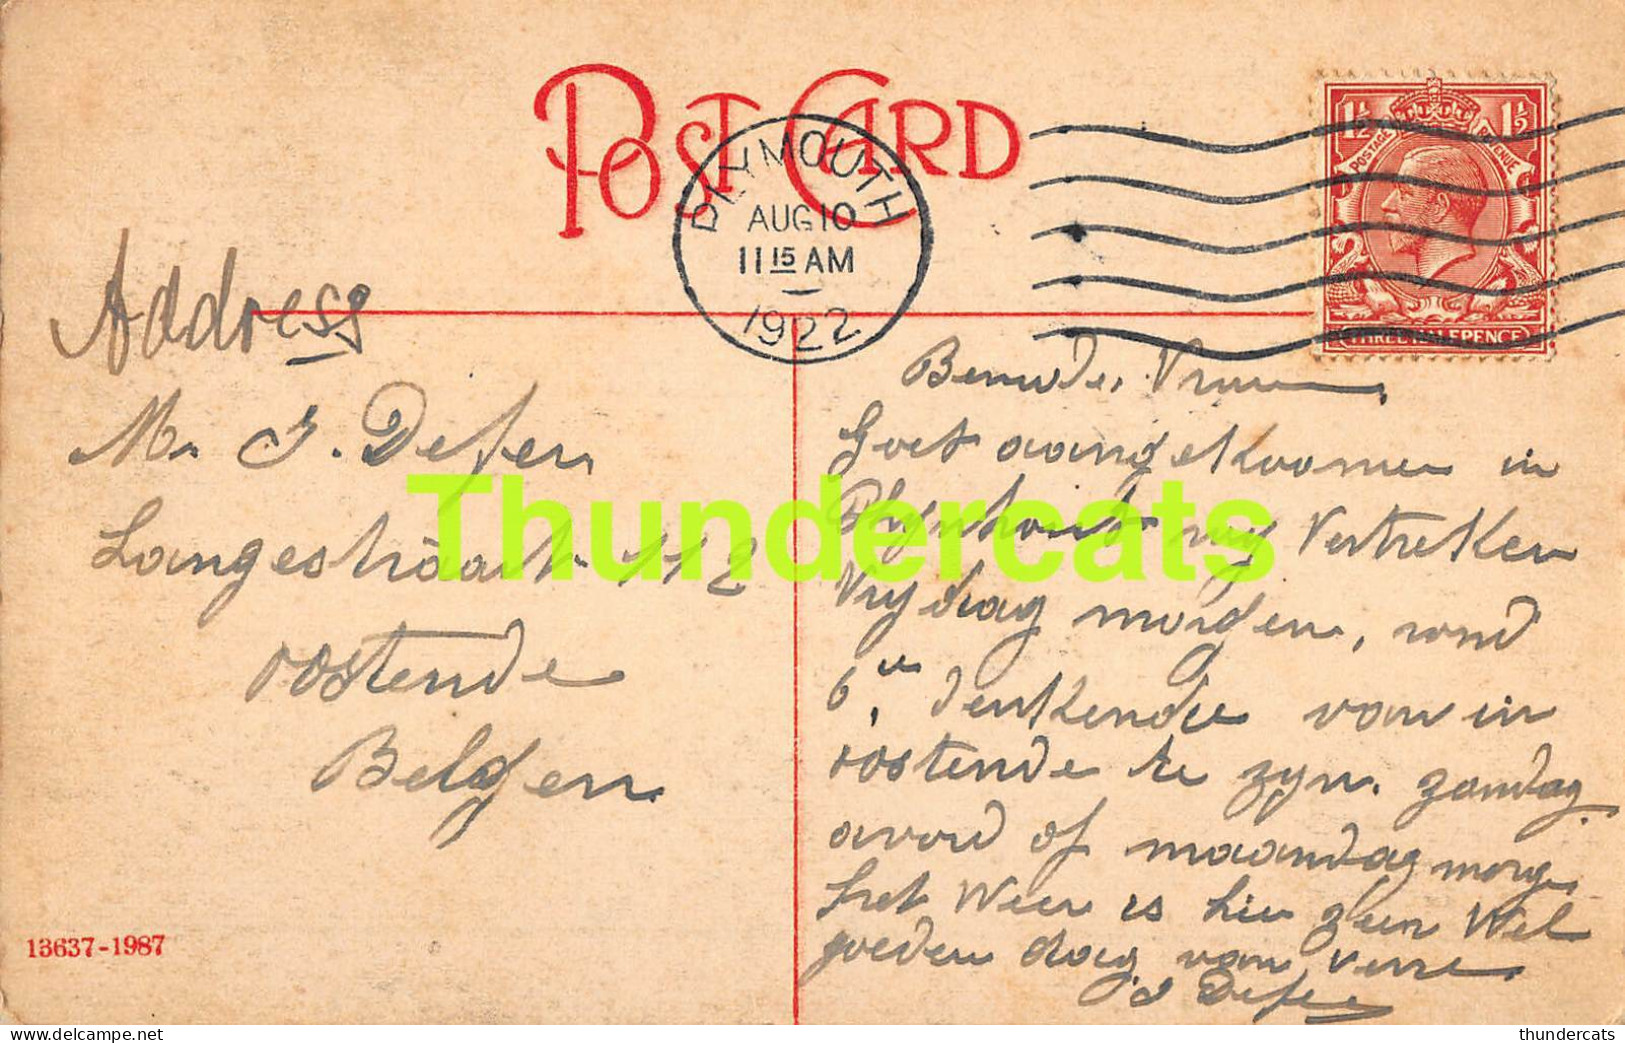 POST CARD
PLYMOUTH
AUG 10
11 15 AM
1922
1½ 1½
POSTAGE REVENUE
THREE HALFPENCE
Address
M. J. Defer
Langestraat 112
Oostende
Belgen
Beminde Vrouw
Goet aangekoomen in
wy Vertreken
Vrydag morgen, rond
6 denkende van in
oostende te zyn. zondag
avond of maandag morge
het Weer is hier geen Wel
goeden dag van verre
J Defer
13637-1987
Thundercats
thundercats.delcampe.net